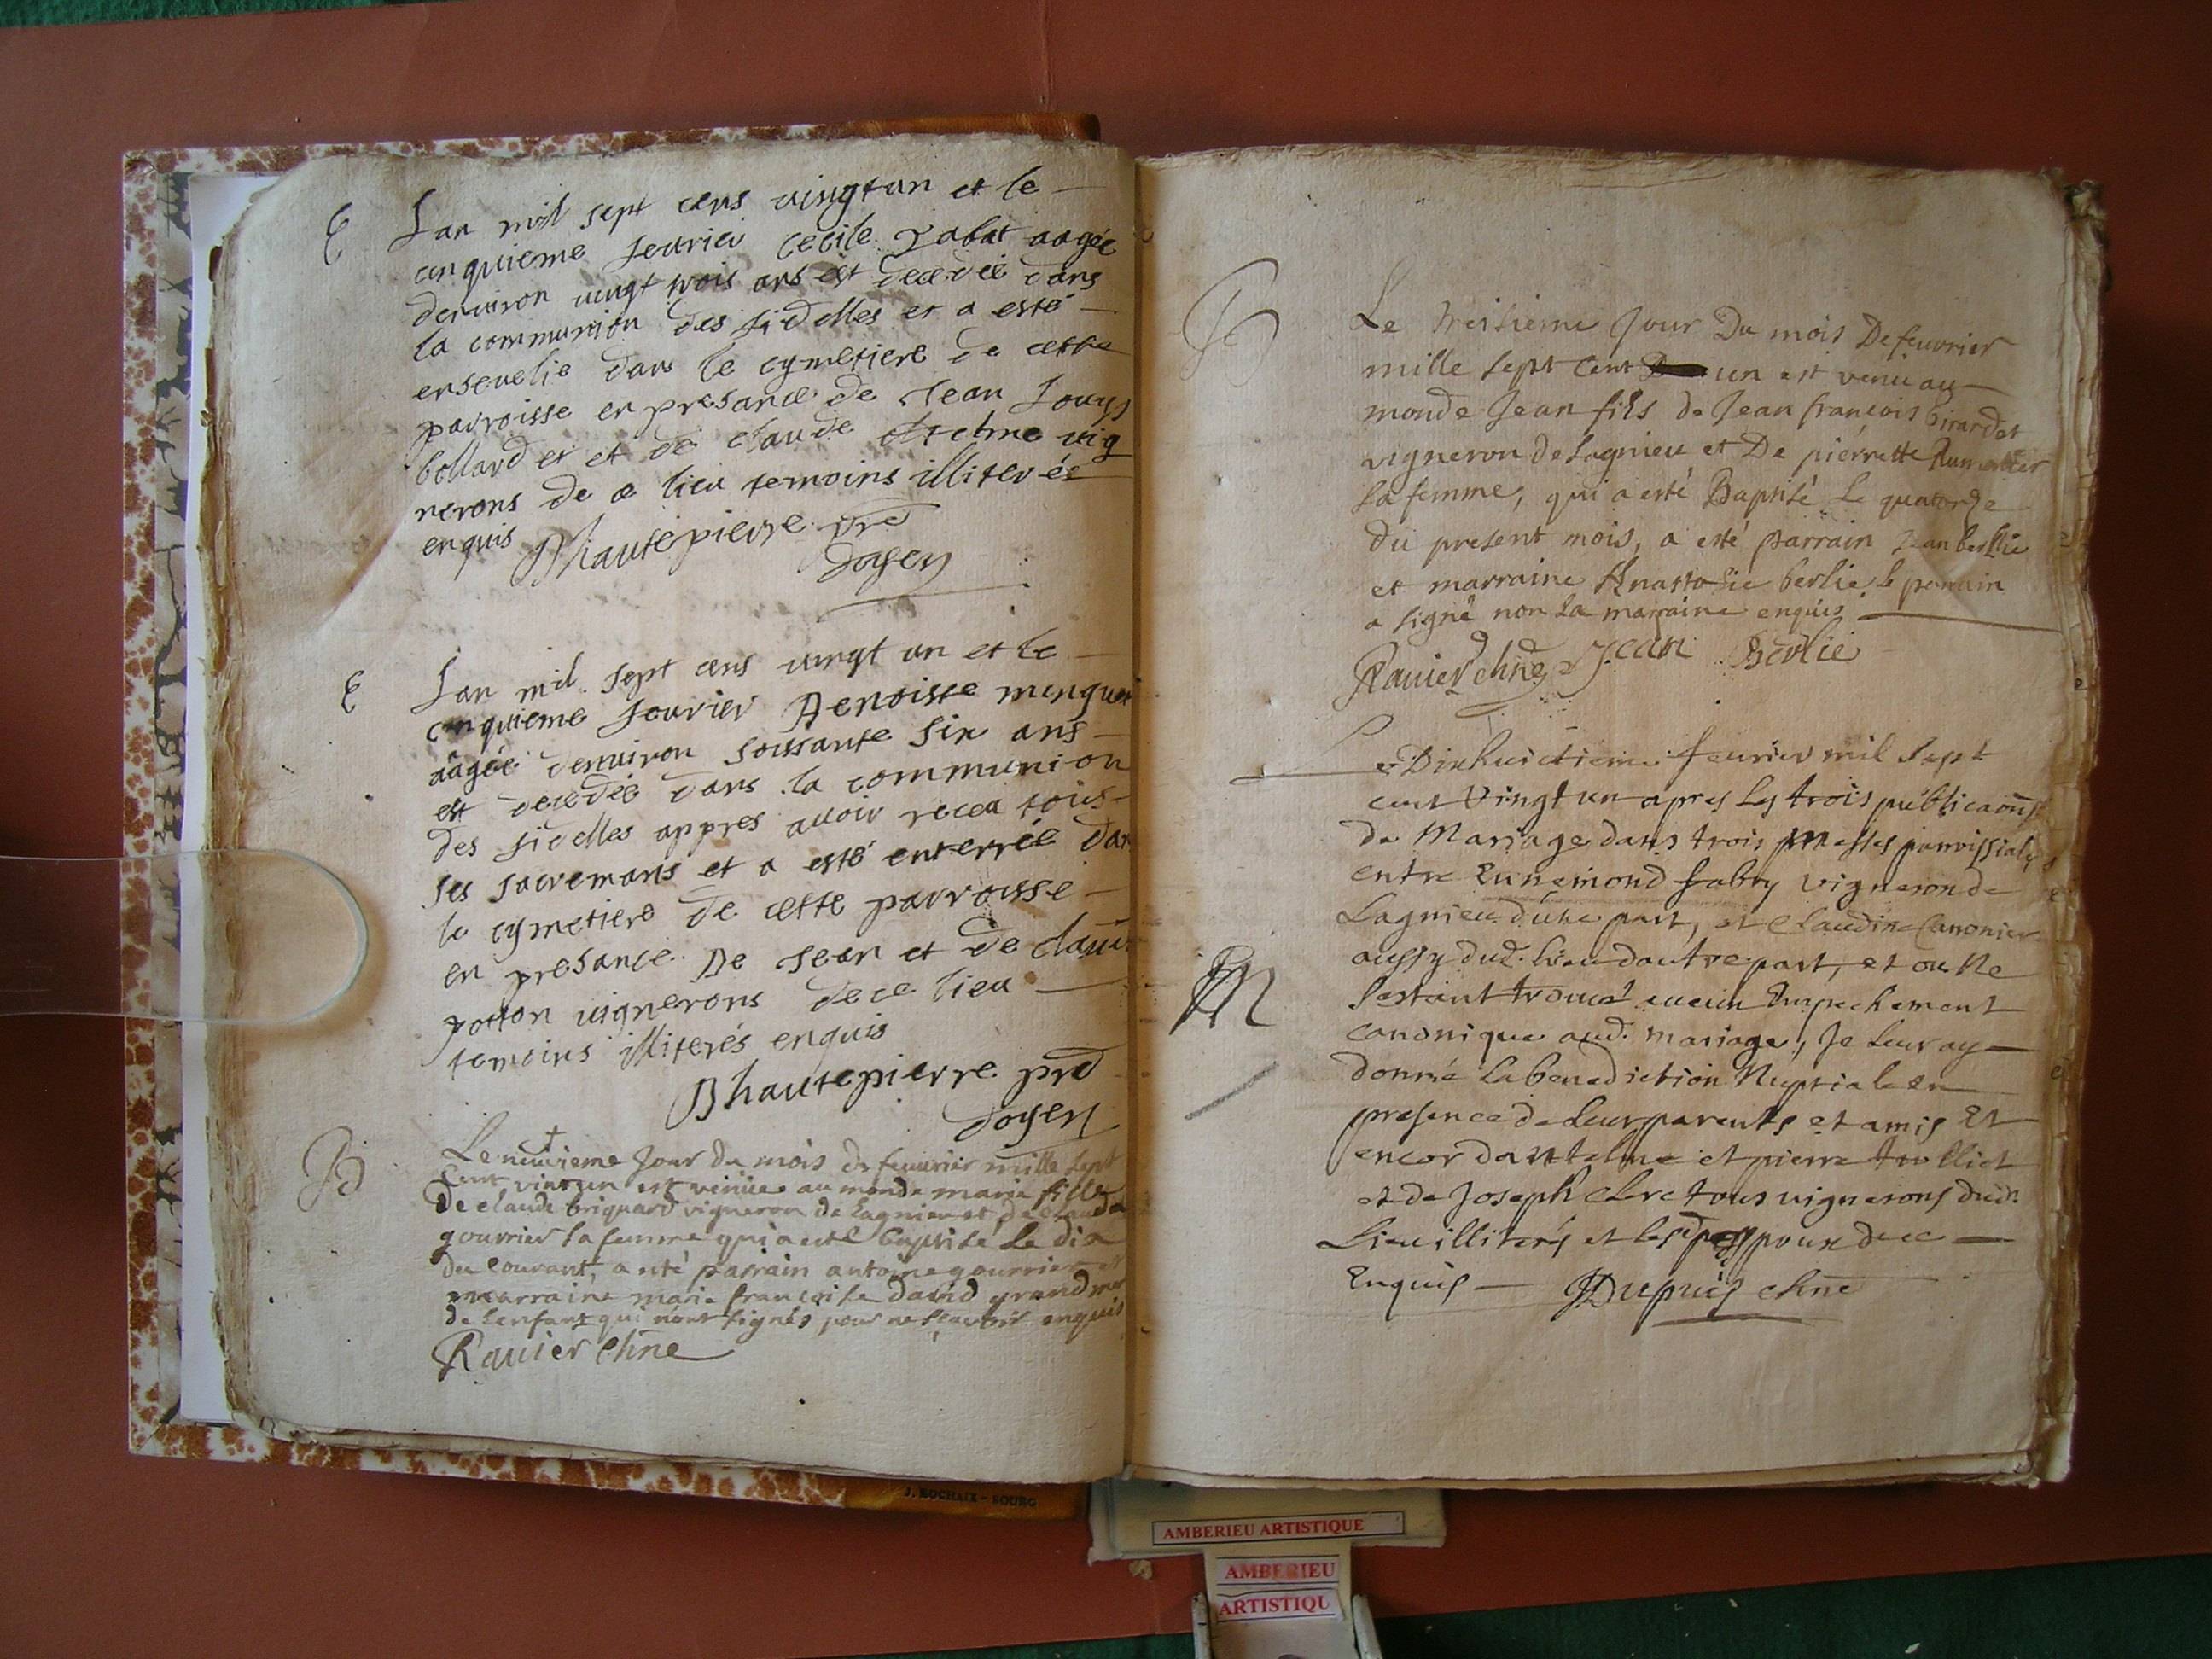 E
Lan mil sept cens vingt un et le
cinquieme feurier cecile aagée
denuiron vingt trois ans est decedée dans
la communion des fidelles et a esté
enseuelie dans le cymetiere de cette
parroisse en presance de Jean Louys
bollardet et de claude vig
nerons de ce lieu temoins illiterés
enquis
Dhautepierre pre
doyen
E
Lan mil sept cens vingt un et le
cinquieme feurier Benoiste
aâgée denuiron soissante six ans
est decedée dans la communion
des fidelles appres auoir receu tous
ses sacremans et a esté enterrée dan
le cymetiere de cette parroisse
en presance De Jean et de claude
potton vignerons de ce lieu
temoins illiterés enquis
Dhautepierre pre
doyen
B
Le neuuieme Jour du mois de feuurier mille sept
Cent vint un est venüe au monde marie fille
De claude briquard vigneron de Lagnieu et de claud
gourrier sa femme qui a esté baptisé Le dix
du Courant, a esté parrain antoine gourrier et
marraine marie francoise david grand mer
de Lenfant qui n'ont signés pour ne scavoir enquis
Rauier chne
B
Le treisieme Jour Du mois De feuurier
mille sept Cent un est venu au
monde Jean fils de Jean francois Girardet
vigneron de Lagnieu et De pierrette
sa femme, qui a esté Baptisé Le quatorze
du present mois, a esté parrain Jean berlie
et marraine Anastasie berlie, le parrain
a signé non La marraine enquis
Rauier chne Jean Berlie
Le Dixhuictieme feurier mil sept
cent Vingt un apres Les trois publicaons
de Mariage dans trois Messes parroissiales
entre Ennemond fabry vigneron de
Lagnieu dune part, et Claudine Canonier
aussy dud. Lieu dautre part, et on Ne
sestant trouué aucun Empechement
M
canonique aud. mariage, Je Leur ay
donné La benediction Nuptiale en
presence de Leurs parents et amis Et
encor danthelme et pierre trolliet
et de Joseph clerc tous vignerons dud.
Lieu illiterés et Les d. epoux de ce
Enquis Dupuis chne
J. ROCHAIX - BOURG
AMBERIEU ARTISTIQUE
AMBERIEU
ARTISTIQU